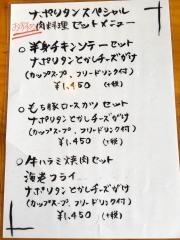 ナポリタンスペシャル
おすすめ 肉料理 セットメニュー
○ 半身チキンソテーセット
ナポリタンとかしチーズがけ
(カップスープ、フリードリンク付)
¥1,450 (+税)
○ もち豚ロースカツセット
ナポリタンとかしチーズがけ
(カップスープ、フリードリンク付)
¥1,450 (+税)
○ 牛ハラミ焼肉セット
海老フライ
ナポリタンとかしチーズがけ
(カップスープ、フリードリンク付)
¥1,450 (+税)